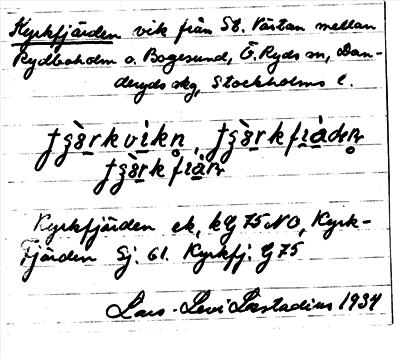 Kyrkfjärden vik från St. Västan mellan
Rydboholm o. Bogesund, Ö. Ryds sn, Dan-
deryds skg, Stockholms l.
Kyrkfjärden ek, kG 75 NO, Kyrk-
Fjärden Sj. 61. Kyrkfj. G 75
Lars-Levi Læstadius 1934